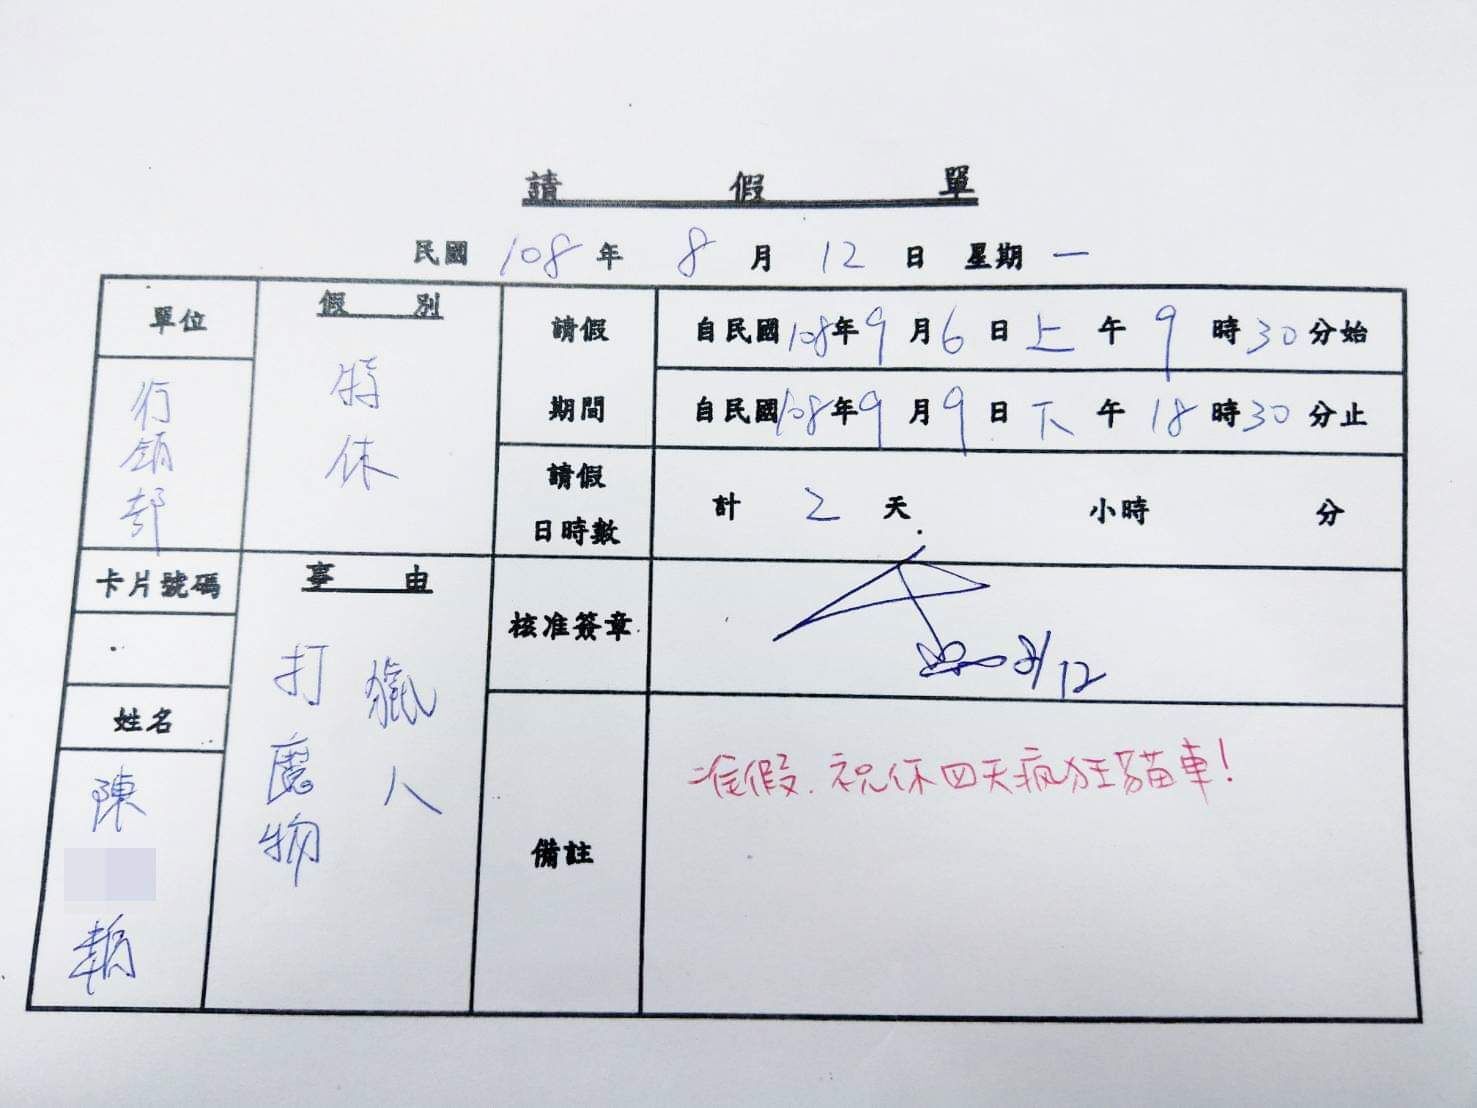 請假單
民國 108 年 8 月 12 日 星期 一
單位
行銷部
假別
特休
請假期間
自民國108年9月6日上午9時30分始
自民國108年9月9日下午18時30分止
請假日時數
計 2 天 小時 分
卡片號碼
姓名
陳
事由
獵人
打魔物
核准簽章
8/12
備註
准假. 祝休四天瘋狂貓車!